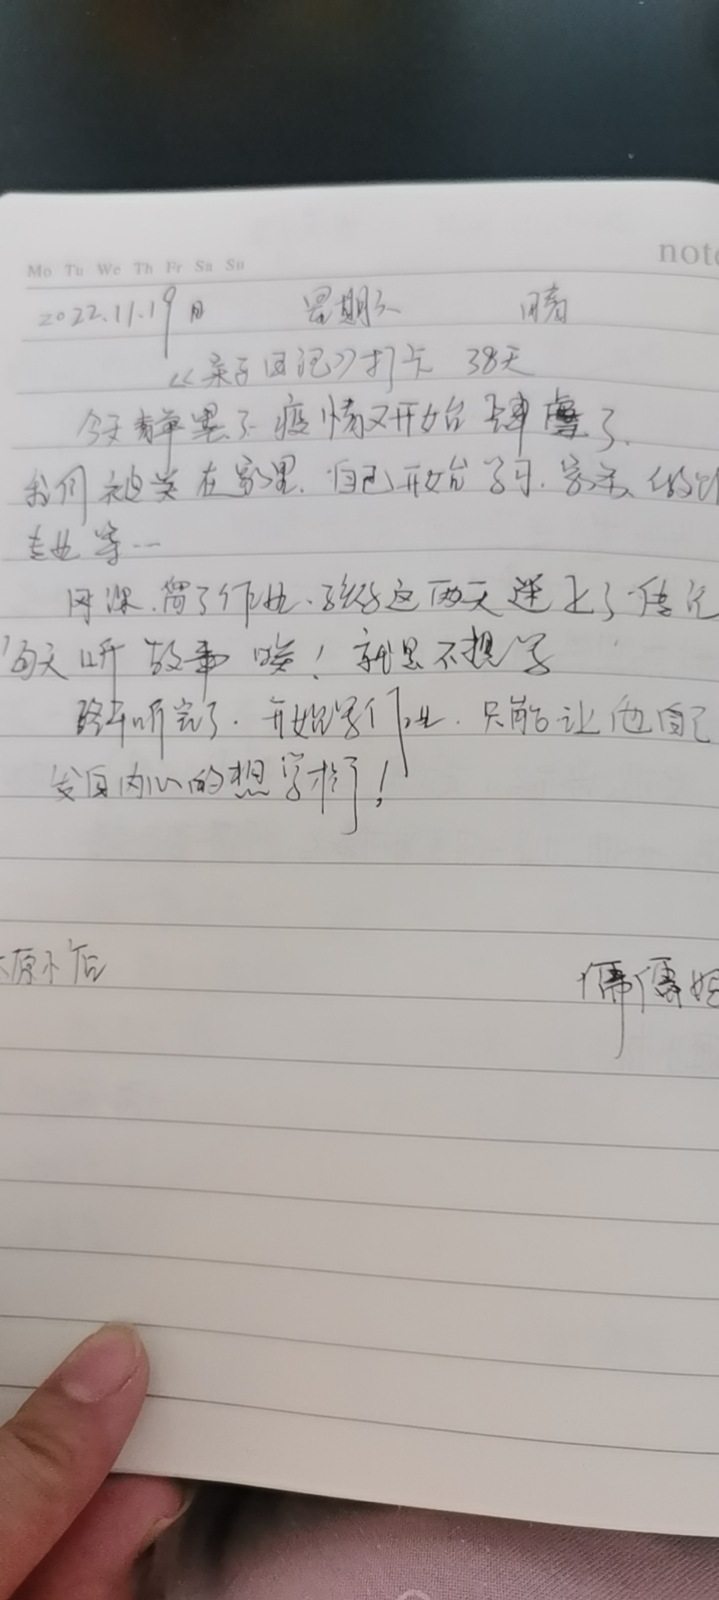 Mo Tu We Th Fr Sa Su
note
2022.11.19日 星期六 晴
《亲子日记》打卡 38天
今天 简单累了 疫情又开始肆虐了.
我们被关在家里. 自己开始学习. 家务、做
专业等…
网课、简了作业、孩子这两天迷上了传记
天听故事 唉！就是不想学
终于听完了. 开始写作业. 只能让他自己
发自内心的想学才行！
原小店
儒儒妈